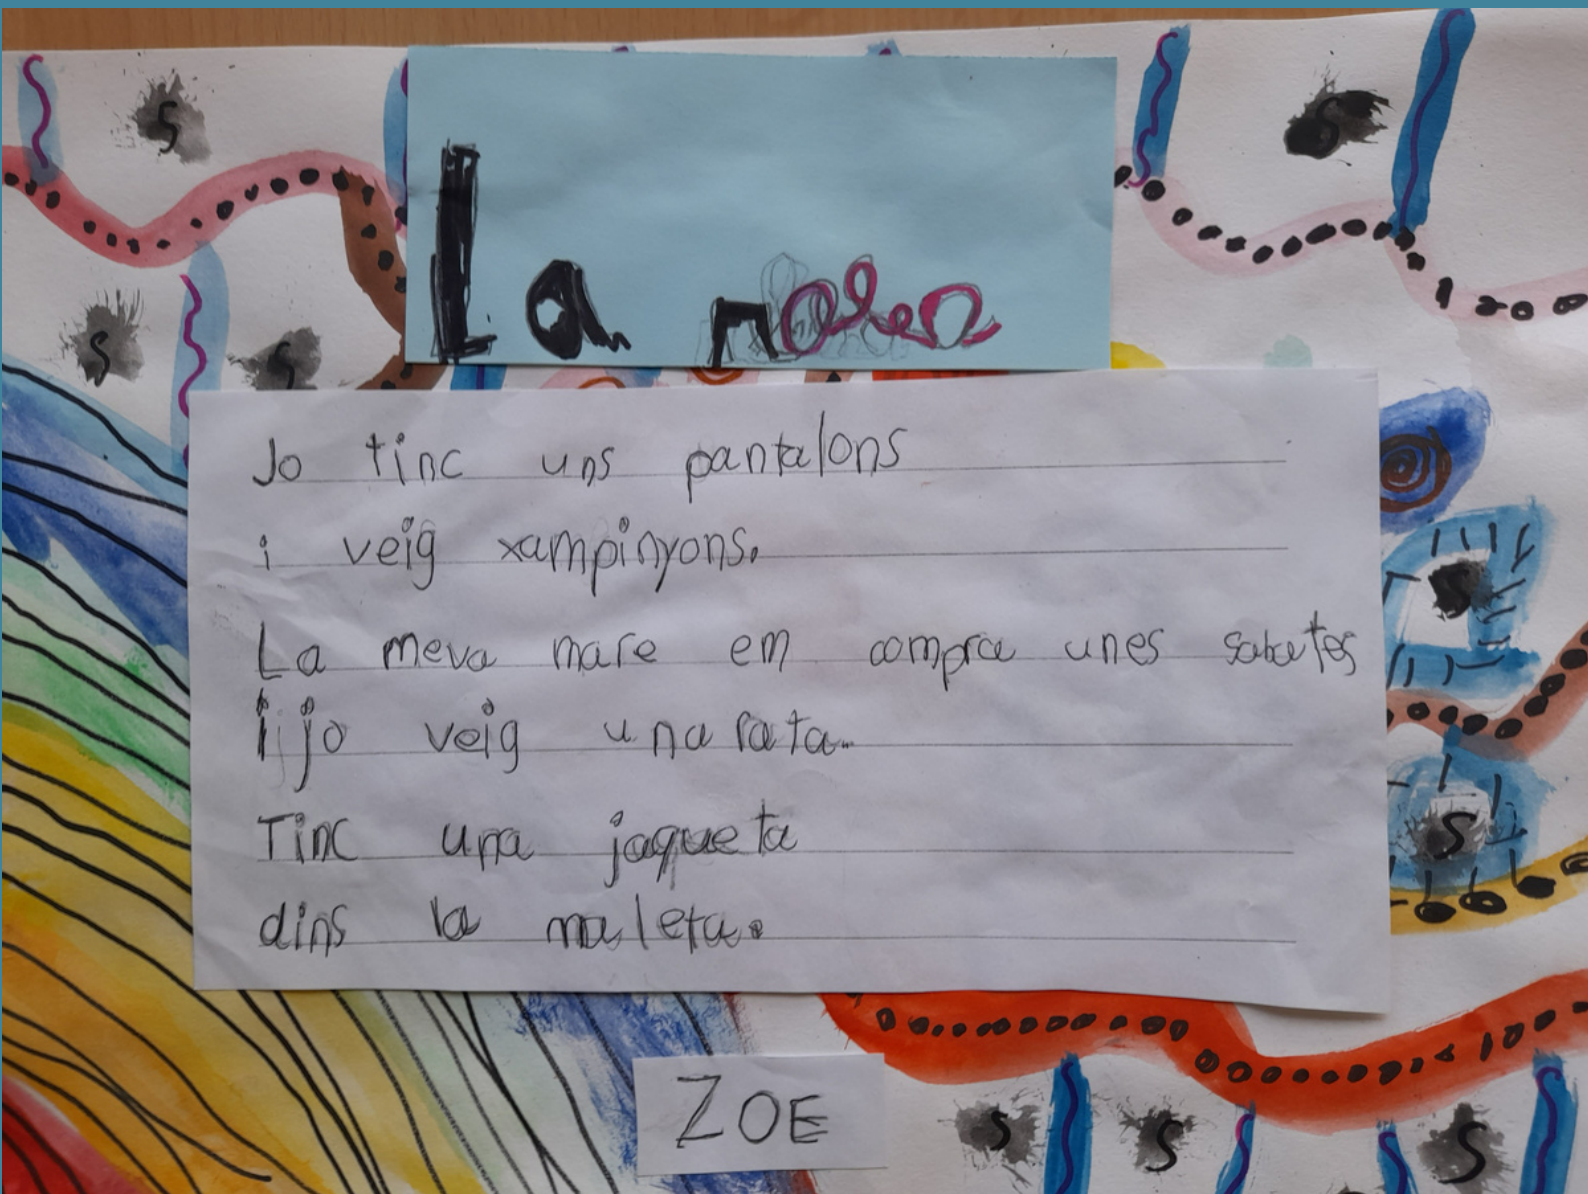 La
Jo tinc uns pantalons
i veig xampinyons.
La meva mare em compra unes sabates
i jo veig una rata.
Tinc una jaqueta
dins la maleta.
ZOE